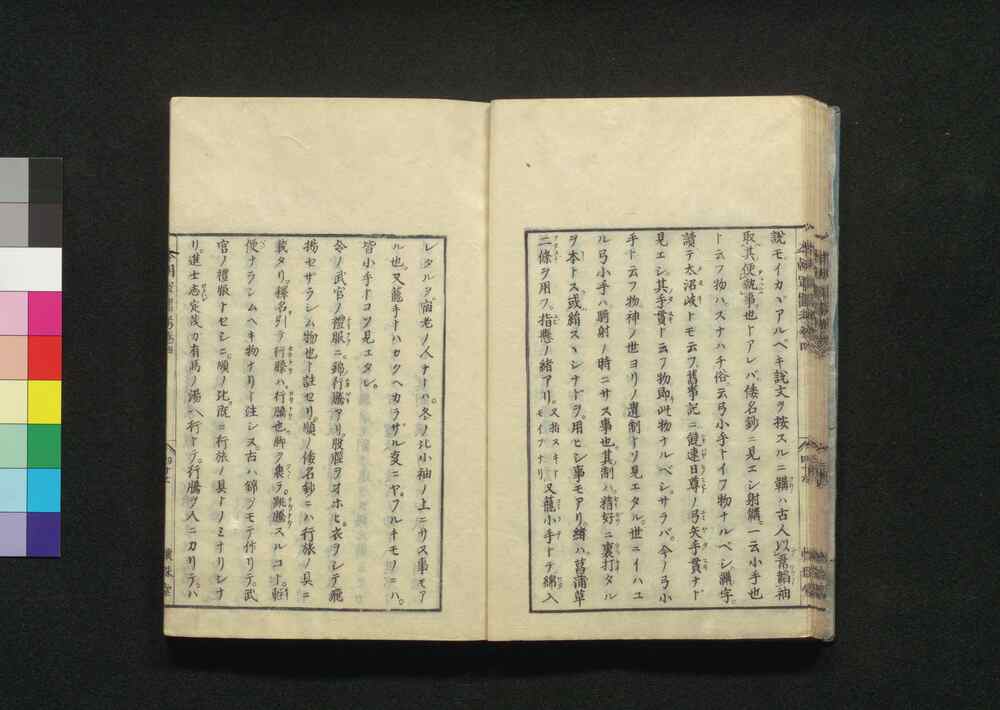 説モイカヾアルベキ説文ヲ按スルニ鞲ハ古人以韋韜袖
取其便就事也トアレバ倭名鈔ニ見エシ射鞲一云小手也
ト云フ物ハスナハチ俗云弓小手トイフ物ナルベシ鞲字
讀テ太沼岐トモ云フ舊事記ニ饒速日尊ノ弓矢手貫ナド
見エシ其手貫ト云フ物即此物ナルベシサラバ今ノ弓小
手ト云フ物神ノ世ヨリノ遺制トゾ見エタル世ニイハユ
ル弓小手ハ騎射ノ時ニサス事也其制ハ精好ニ裏打タル
ヲ本トス或絹スヾシナドヲ用ヒシ事モアリ緒ハ菖蒲草
二條ヲ用フ指懸ノ緒アリ又指ヌキトモイフナリ又籠小手トテ綿入
レタルヲ宿老ノ人ナドハ冬ノ比小袖ノ上ニサス事モア
ル也又籠手トハカクヘカラザル支ニヤフルキモノニハ
皆小手トコソ見エタレ
令ノ武官ノ禮服ニ錦行騰アリ股脛ヲオホヒ衣ヲシテ飛
揚セサラシム物也ト註セリ順ノ倭名鈔ニハ行旅ノ具ニ
載タリ釋名引テ行縢ハ行騰也脚ヲ裹テ跳騰スルコト軽
便ナラシムヘキ物ナリト注シヌ古ハ錦ヲモテ作リテ武
官ノ禮服トセシニ順ノ比既ニ行旅ノ具トノミナリシナ
リ進士志定茂カ有馬ノ湯ヘ行トテ行騰ヲ人ニカリテハ